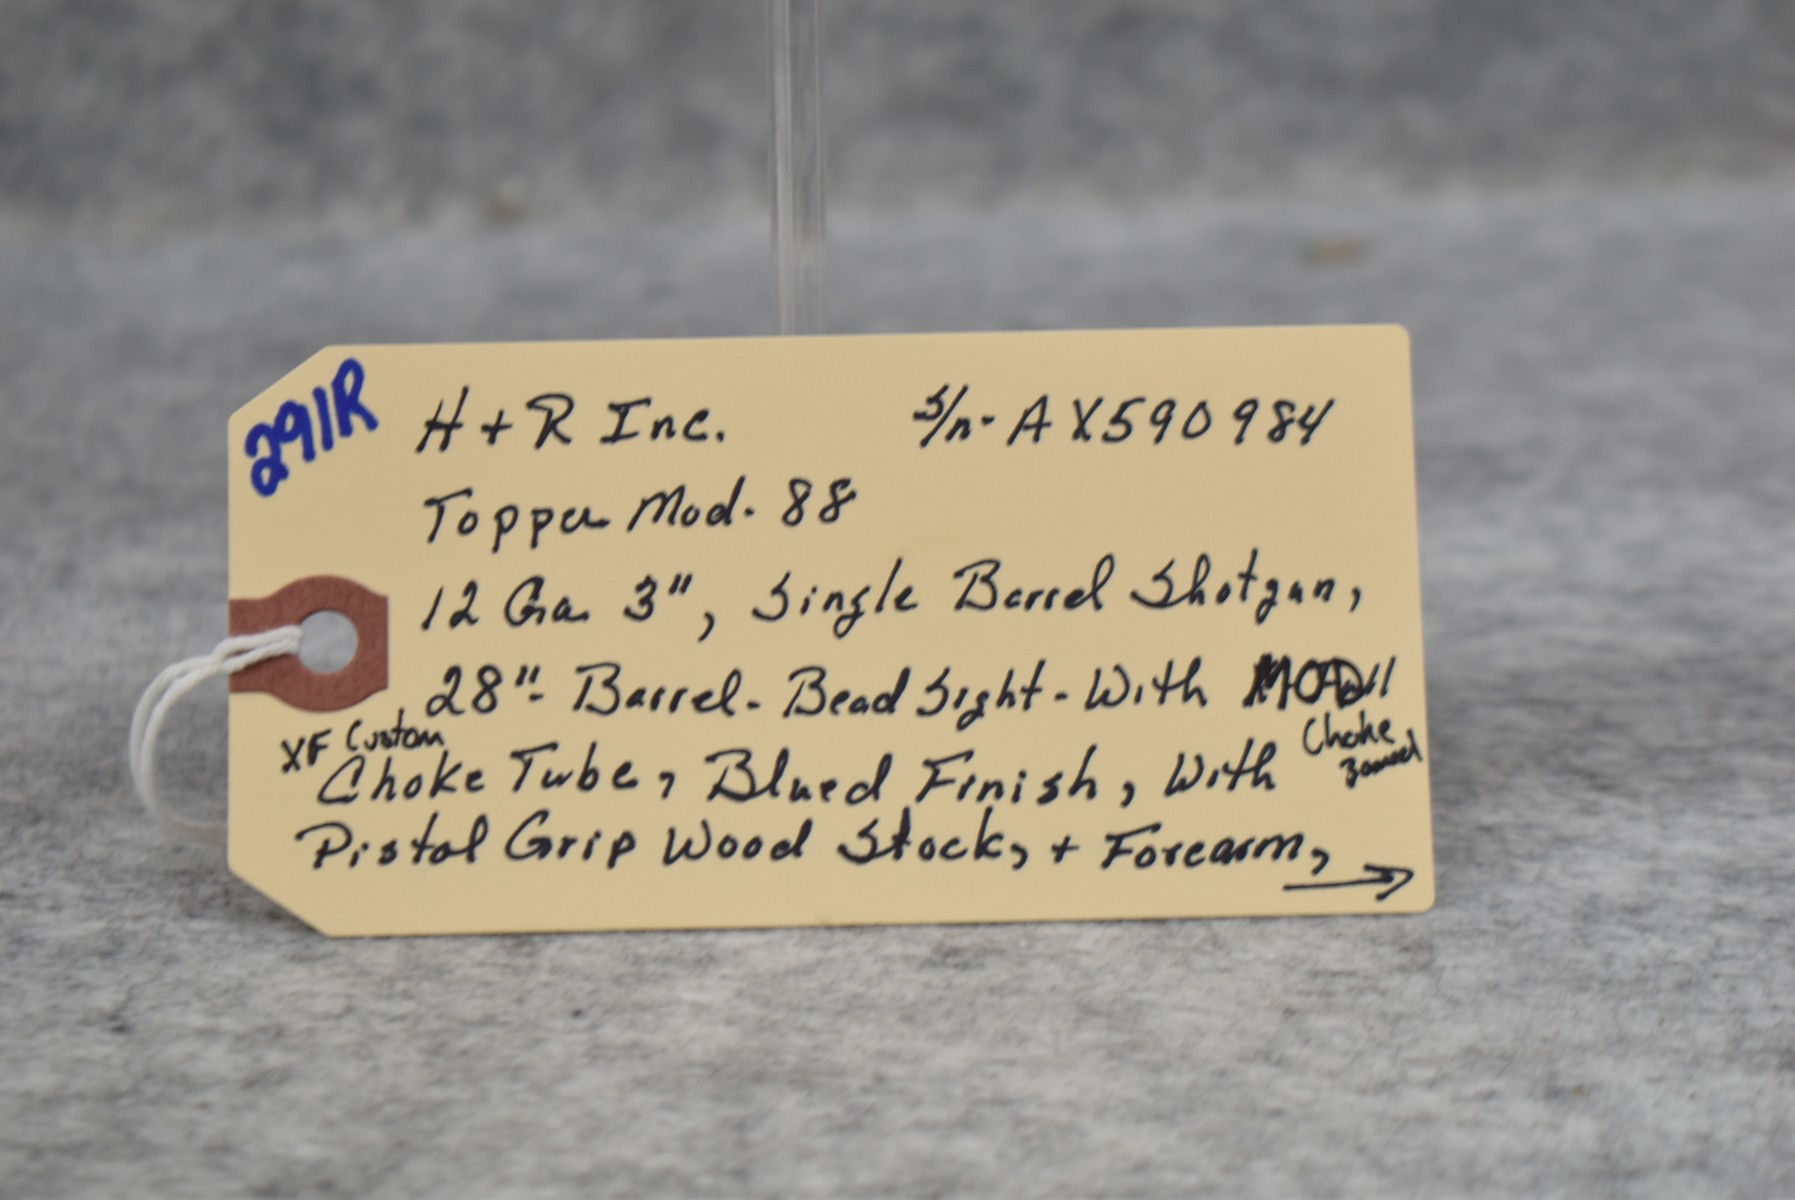 291R
H + R Inc. S/n- AX590984
Topper Mod. 88
12 Ga. 3", Single Barrel Shotgun,
28"- Barrel- Bead Sight- With
XF Custom Choke
Choke Tube, Blued Finish, With
Pistol Grip Wood Stock, + Forearm, →